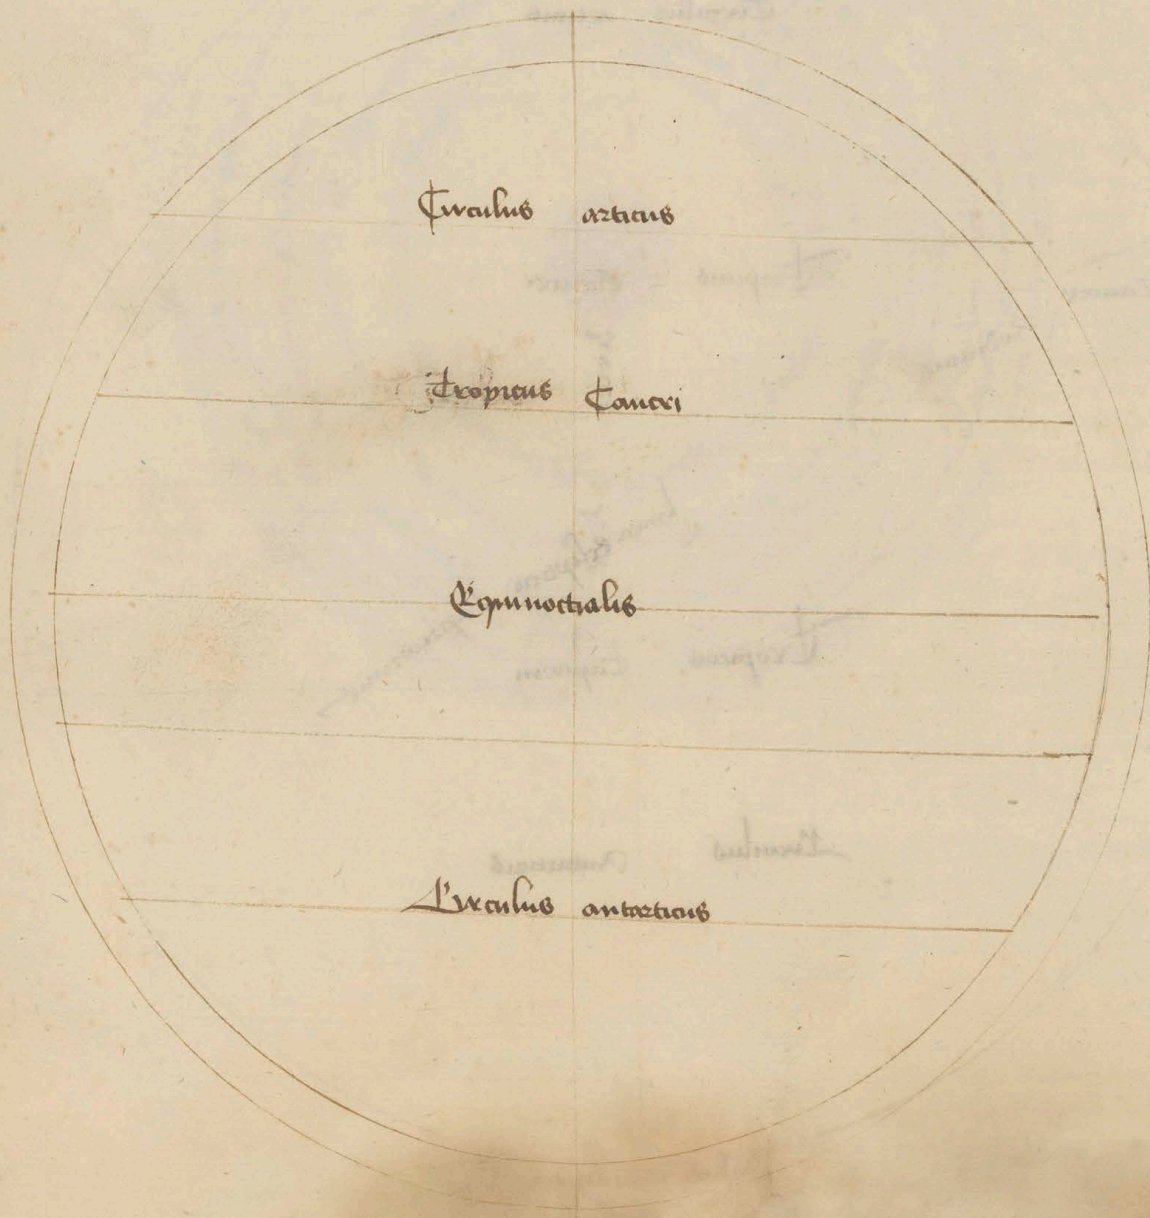 Circulus articus
Tropicus Cancri
Equinoctialis
Circulus antarticus